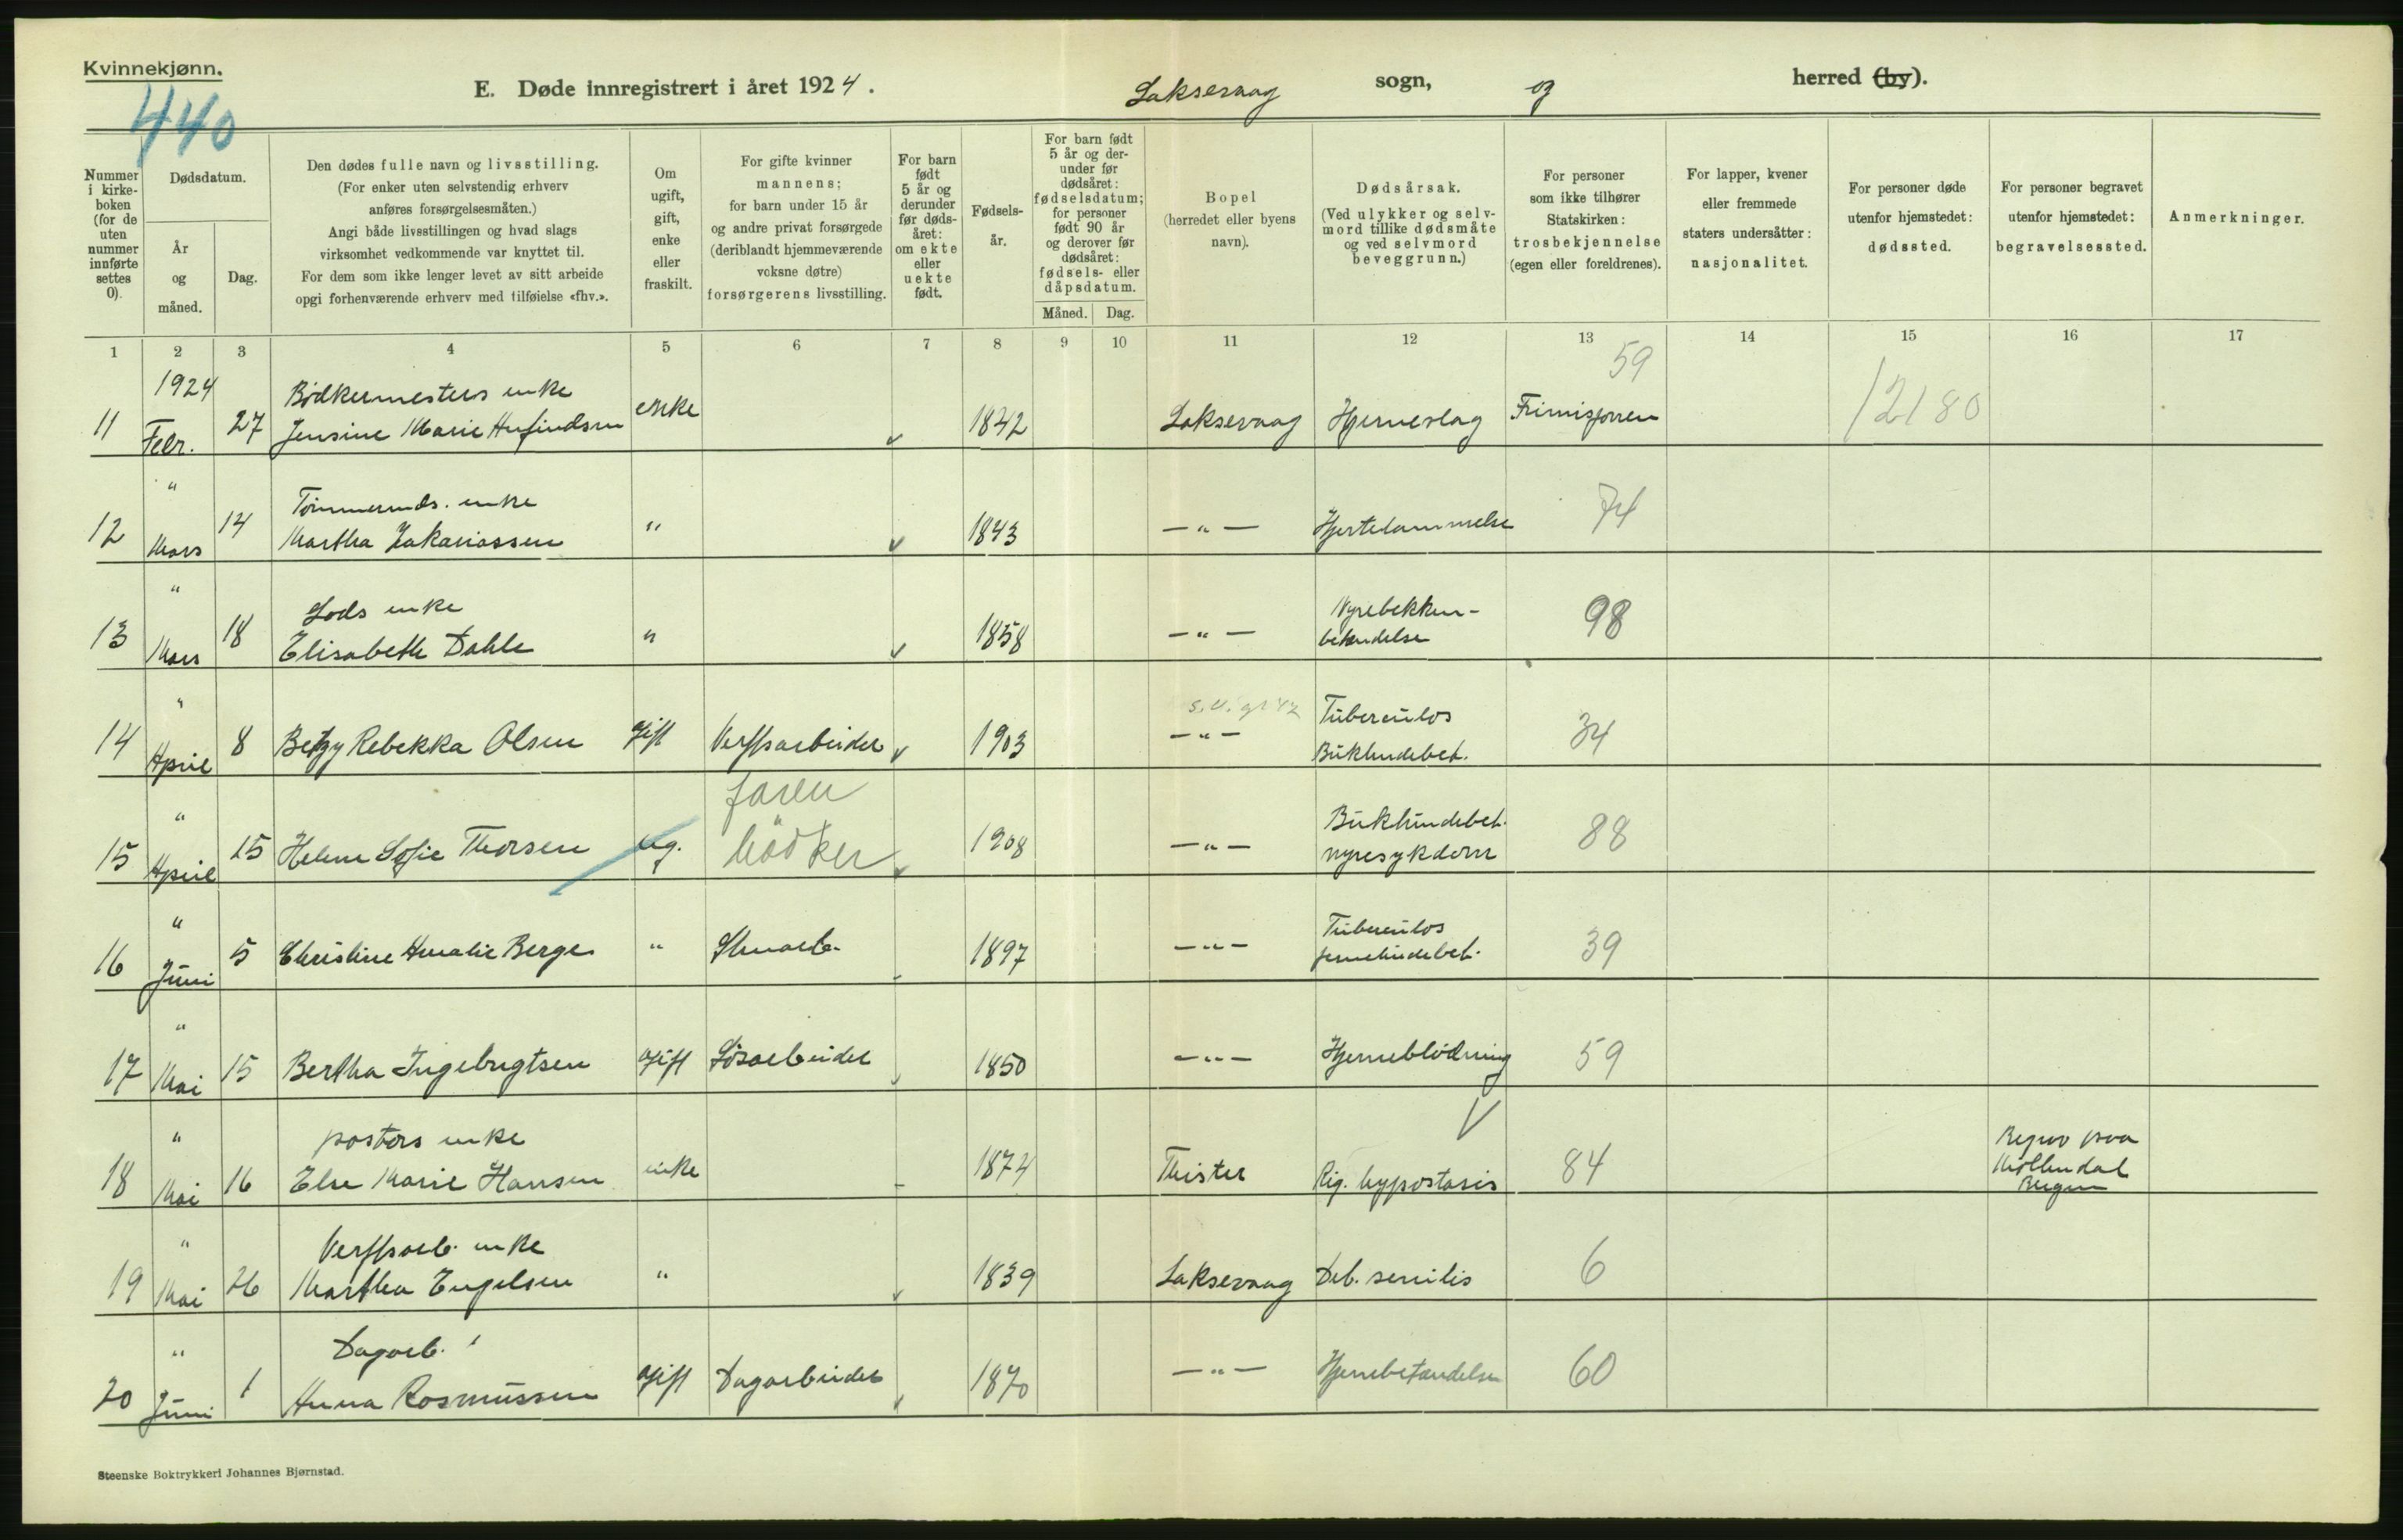 Kvinnekjønn.
440
E. Døde innregistrert i året 1924.
Laksevaag sogn, og herred (by).
Nummer i kirkeboken (for de uten nummer innførte settes 0).
Dødsdatum.
År og måned.
Dag.
Den dødes fulle navn og livsstilling.
(For enker uten selvstendig erhverv
anføres forsørgelsesmåten.)
Angi både livsstillingen og hvad slags
virksomhet vedkommende var knyttet til.
For dem som ikke lenger levet av sitt arbeide
opgi forhenværende erhverv med tilføielse «fhv.».
Om ugift, gift, enke eller fraskilt.
For gifte kvinner
mannens;
for barn under 15 år
og andre privat forsørgede
(deriblandt hjemmeværende
voksne døtre)
forsørgerens livsstilling.
For barn født 5 år og derunder før dødsåret: om ekte eller uekte født.
Fødselsår.
For barn født 5 år og derunder før dødsåret: fødselsdatum; for personer født 90 år og derover før dødsåret: fødsels- eller dåpsdatum.
Måned. Dag.
Bopel
(herredet eller byens
navn).
Dødsårsak.
(Ved ulykker og selvmord tillike dødsmåte og ved selvmord beveggrunn.)
For personer
som ikke tilhører
Statskirken:
trosbekjennelse
(egen eller foreldrenes).
For lapper, kvener
eller fremmede
staters undersåtter:
nasjonalitet.
For personer døde
utenfor hjemstedet:
dødssted.
For personer begravet
utenfor hjemstedet:
begravelsessted.
Anmerkninger.
1 2 3 4 5 6 7 8 9 10 11 12 13 14 15 16 17
1924 Bødkermesters enke 59
11 Febr. 27 Jensine Marie enke 1842 Laksevaag Hjerneslag Frimisjonen 12180
" enke
12 Mars 14 Martha Zakariassen " 1843 — " — Hjertelammelse 74
" Lods enke Nyrebekken-
13 Mars 18 Elisabeth Dahle " 1858 — " — betendelse 98
" Tuberculos
14 April 8 Betzy Rebekka Olsen gift Verftsarbeider 1903 — " — Bukhindebet. 34
" faren Bukhindebet.
15 April 15 Helene Sofie Thorsen ug. bødker 1908 — " — nyresykdom 88
" Tuberculos
16 Juni 5 Christine Amalie Berge " 1897 — " — hjernehindebet. 39
"
17 Mai 15 Bertha Ingebrigtsen gift Løsarbeider 1850 — " — Hjerneblødning 59
" pastors enke Begrav paa
18 Mai 16 Else Marie Hansen enke 1874 hypostasis 84 Møllendal
Bergen
" Verftsarb. enke
19 Mai 26 Martha Engelsen " 1839 Laksevaag Deb. senilis 6
" Dagarb.
20 Juni 1 Anna Rasmussen gift Dagarbeider 1870 — " — Hjernebetændelse 60
Steenske Boktrykkeri Johannes Bjørnstad.